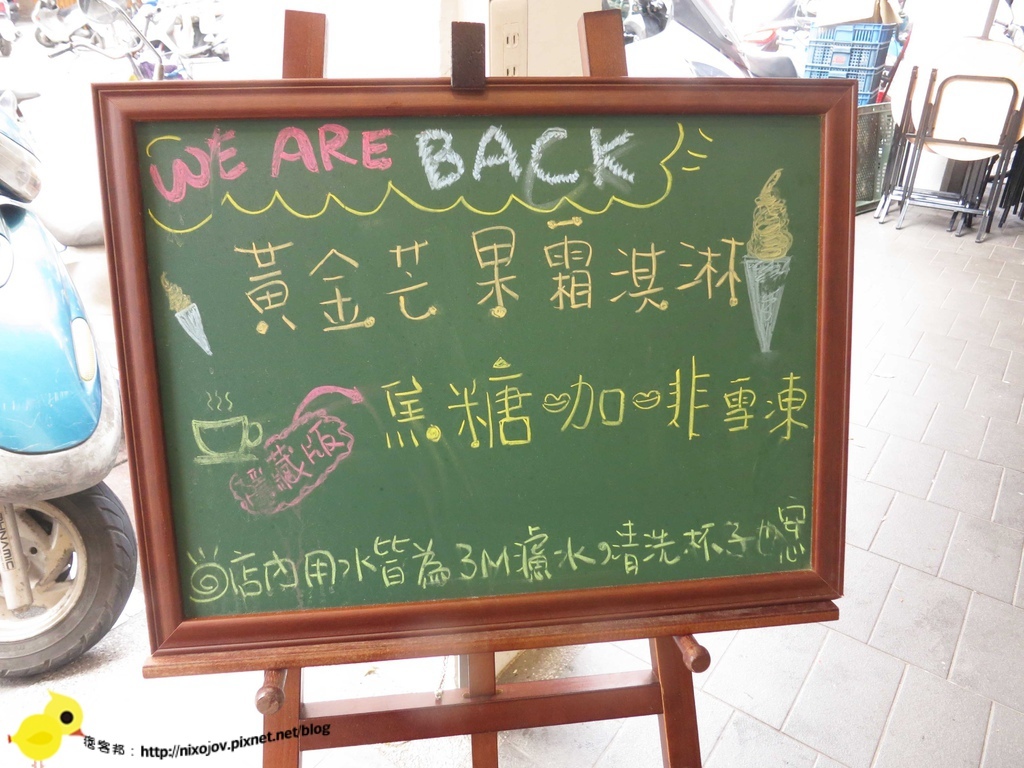 WE ARE BACK
黃金芒果霜淇淋
焦糖咖啡雪凍
隱藏版
店內用水皆為3M濾水,清洗杯子也安心
痞客邦:http://nixojov.pixnet.net/blog